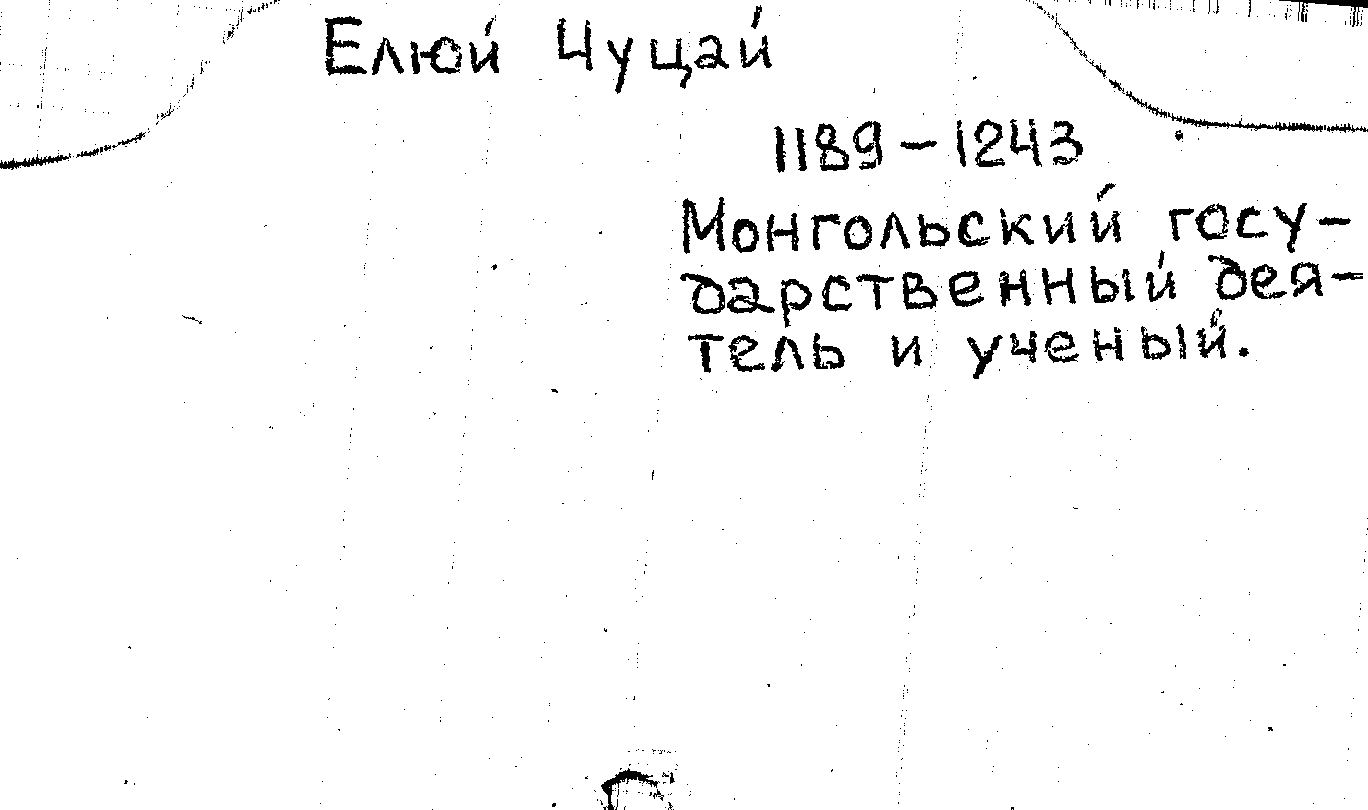 Елюй Чуцай
1189-1243
Монгольский госу-
дарственный дея-
тель и ученый.